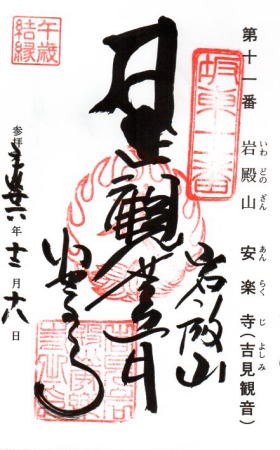 第十一番 岩殿山 安楽寺(吉見観音)
いわ どの ざん あん らく じ よし み
坂東十一番
岩殿山
觀世音
安楽寺
午歳
結縁
参拝 平成廿六年十二月十八日